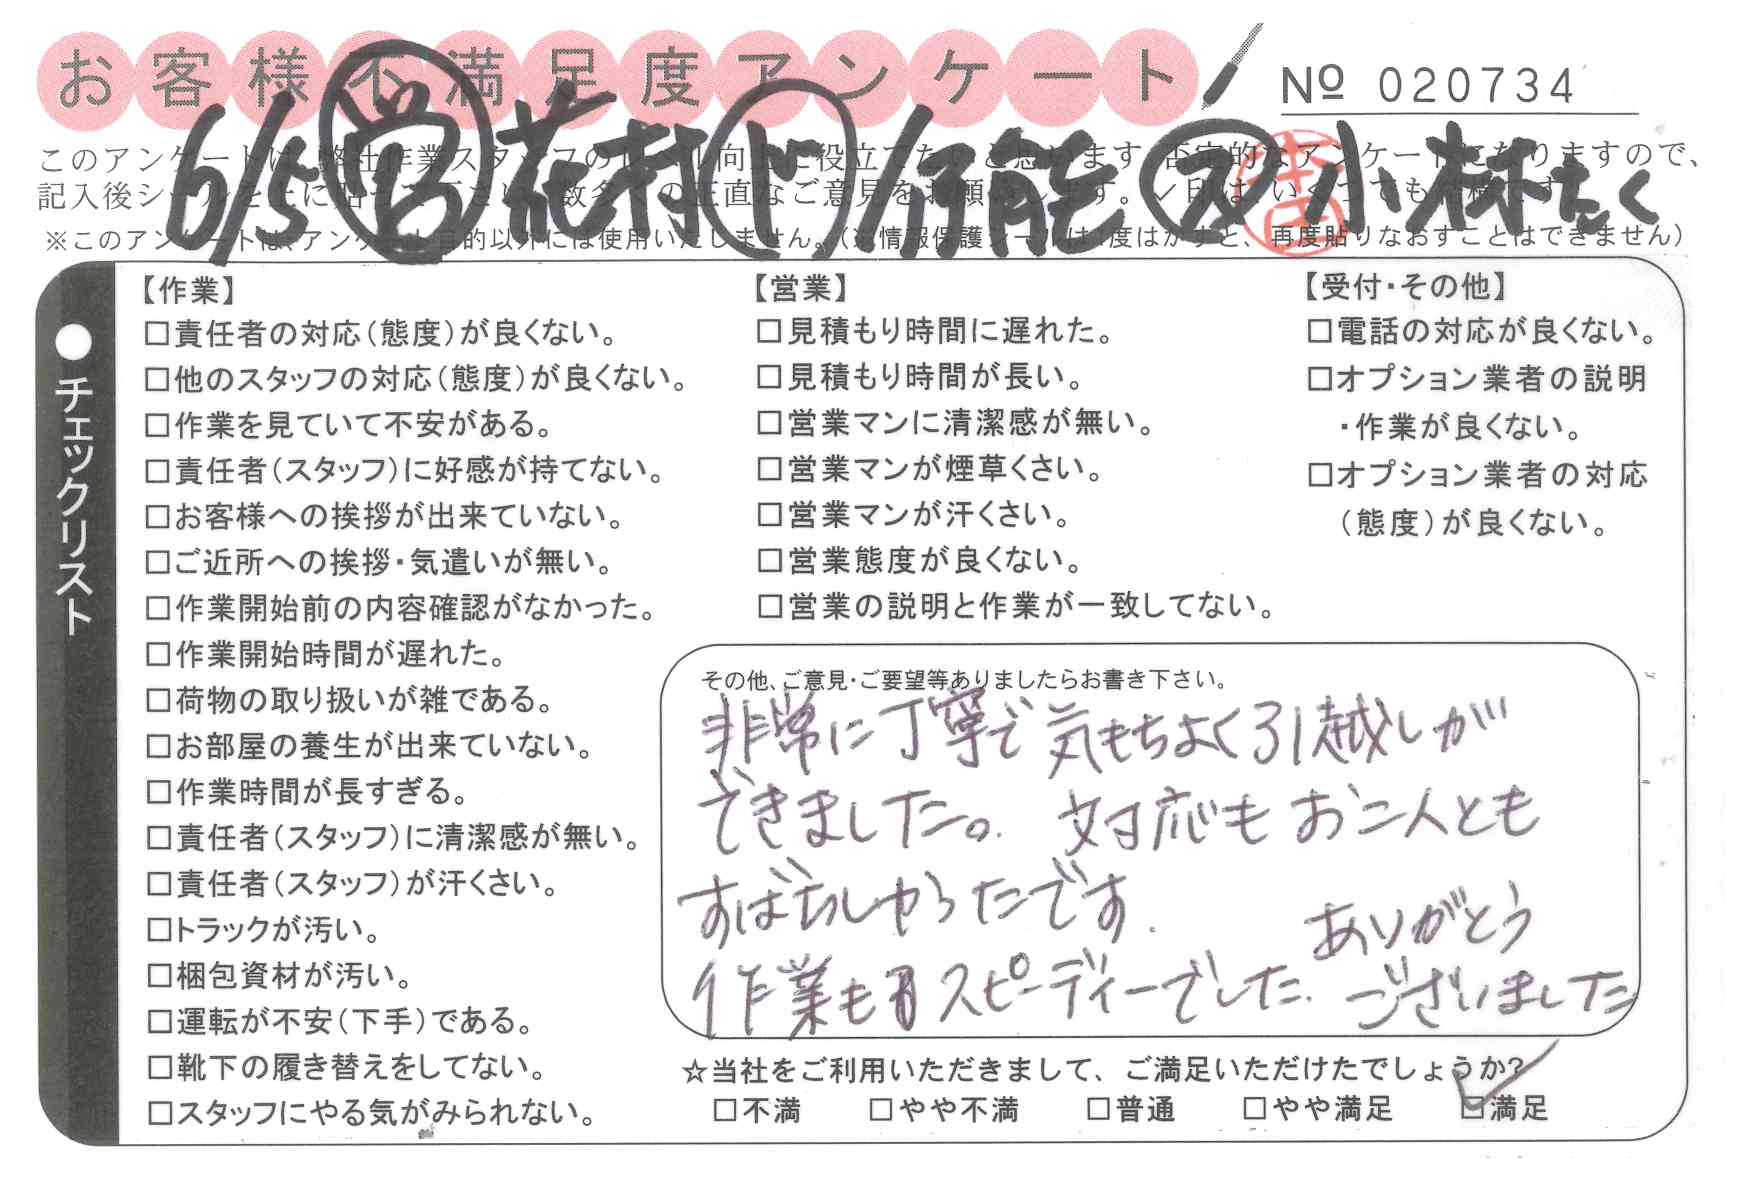 お客様不満足度アンケート
№ 020734
6/5 営 花村 ド 仔能 ス 小林たく
このアンケートは、弊社作業スタッフのレベル向上に役立てたいと思います。否定的なアンケートになりますので、
※このアンケートは、アンケート目的以外には使用いたしません。(※情報保護シールは1度はがすと、再度貼りなおすことはできません)
●チェックリスト
【作業】
□責任者の対応(態度)が良くない。
□他のスタッフの対応(態度)が良くない。
□作業を見ていて不安がある。
□責任者(スタッフ)に好感が持てない。
□お客様への挨拶が出来ていない。
□ご近所への挨拶・気遣いが無い。
□作業開始前の内容確認がなかった。
□作業開始時間が遅れた。
□荷物の取り扱いが雑である。
□お部屋の養生が出来ていない。
□作業時間が長すぎる。
□責任者(スタッフ)に清潔感が無い。
□責任者(スタッフ)が汗くさい。
□トラックが汚い。
□梱包資材が汚い。
□運転が不安(下手)である。
□靴下の履き替えをしてない。
□スタッフにやる気がみられない。
【営業】
□見積もり時間に遅れた。
□見積もり時間が長い。
□営業マンに清潔感が無い。
□営業マンが煙草くさい。
□営業マンが汗くさい。
□営業態度が良くない。
□営業の説明と作業が一致してない。
【受付・その他】
□電話の対応が良くない。
□オプション業者の説明
・作業が良くない。
□オプション業者の対応
(態度)が良くない。
その他、ご意見・ご要望等ありましたらお書き下さい。
非常に丁寧で気もちよく引越しが
できました。対応もお二人とも
すばらしかったです.
作業もスピーディーでした.
ありがとう
ございました
☆当社をご利用いただきまして、ご満足いただけたでしょうか?
□不満 □やや不満 □普通 □やや満足 □満足